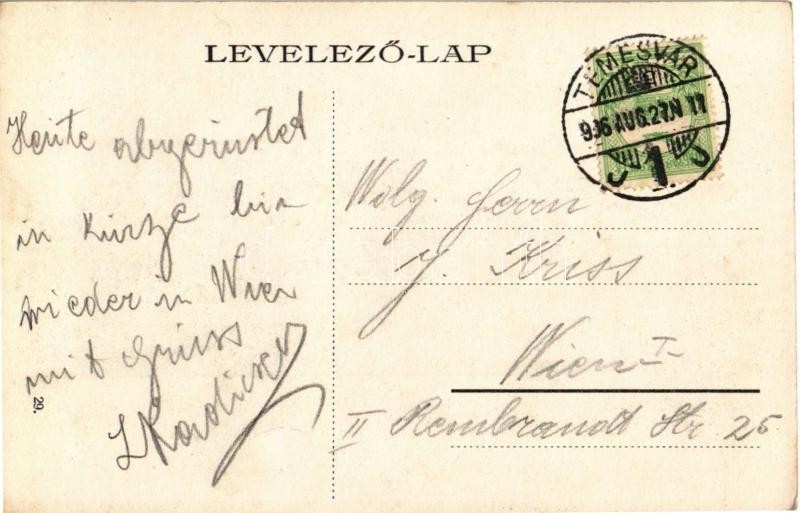 LEVELEZŐ-LAP
TEMESVÁR
906 AUG. 27. N 11
1.
Heute abgerüstet
in Kürze bin
wieder in Wien
mit Gruss
29.
Wolg. Herrn
J. Kriss
Wien I
II Rembrandt Str 25